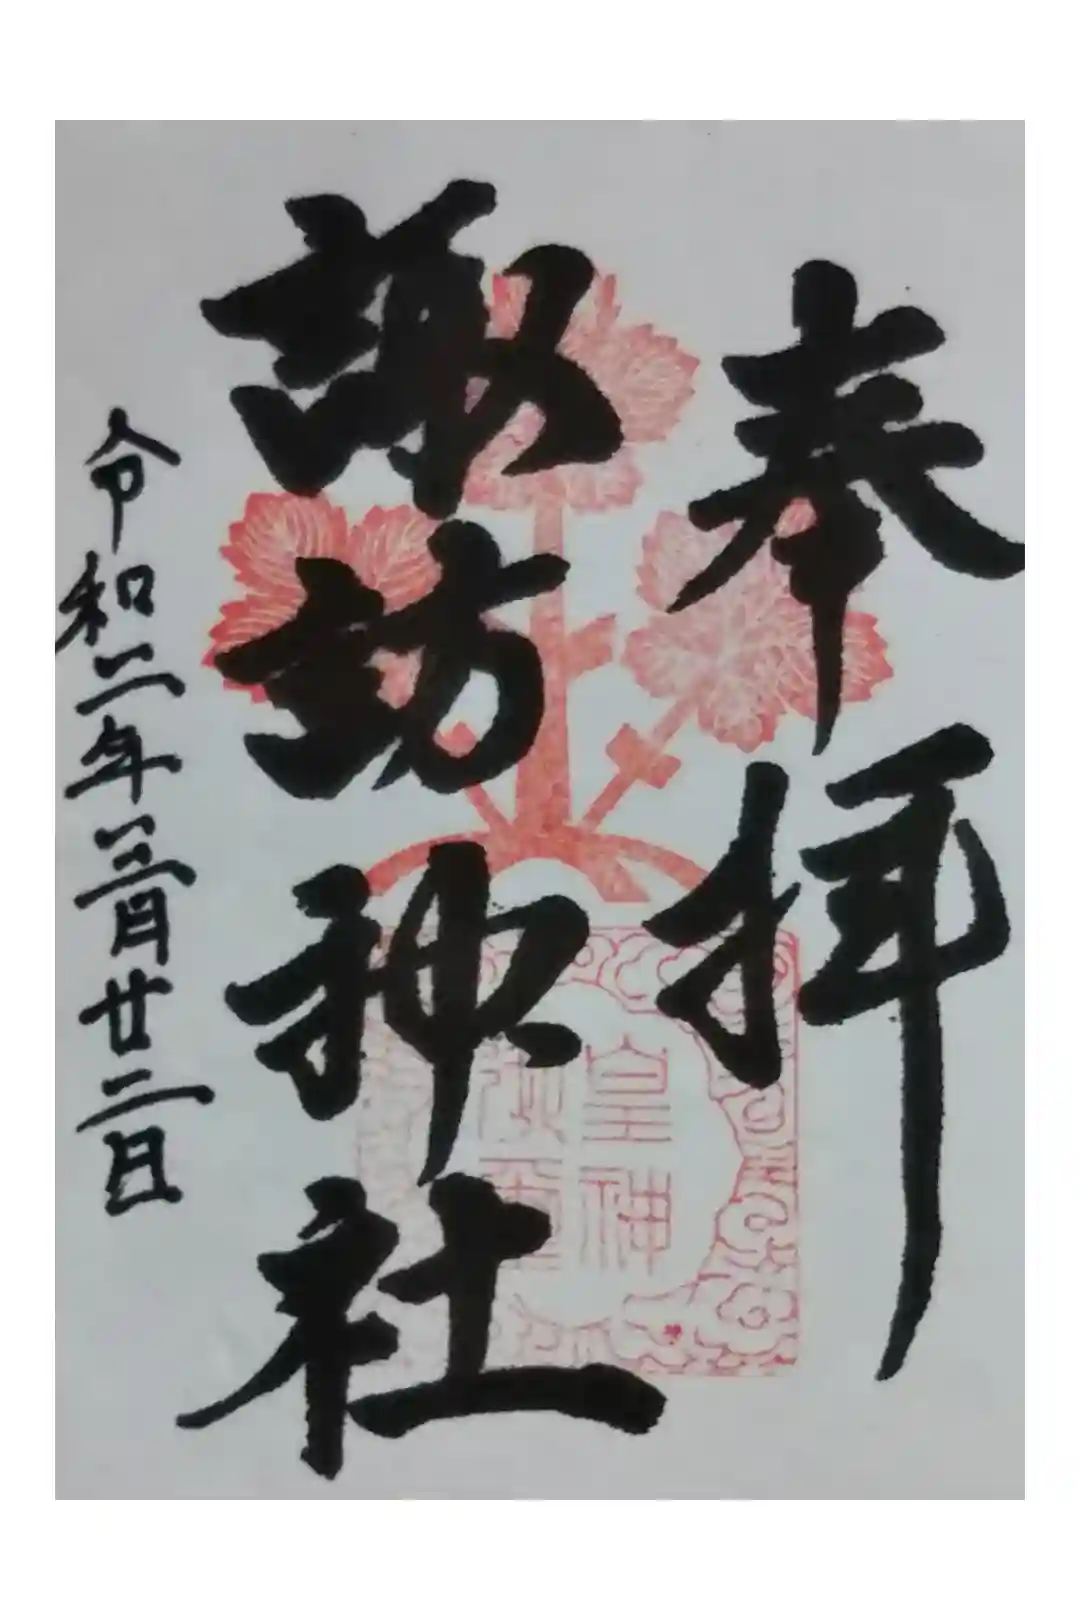 奉拝
諏訪神社
令和二年三月廿二日
皇神
御璽